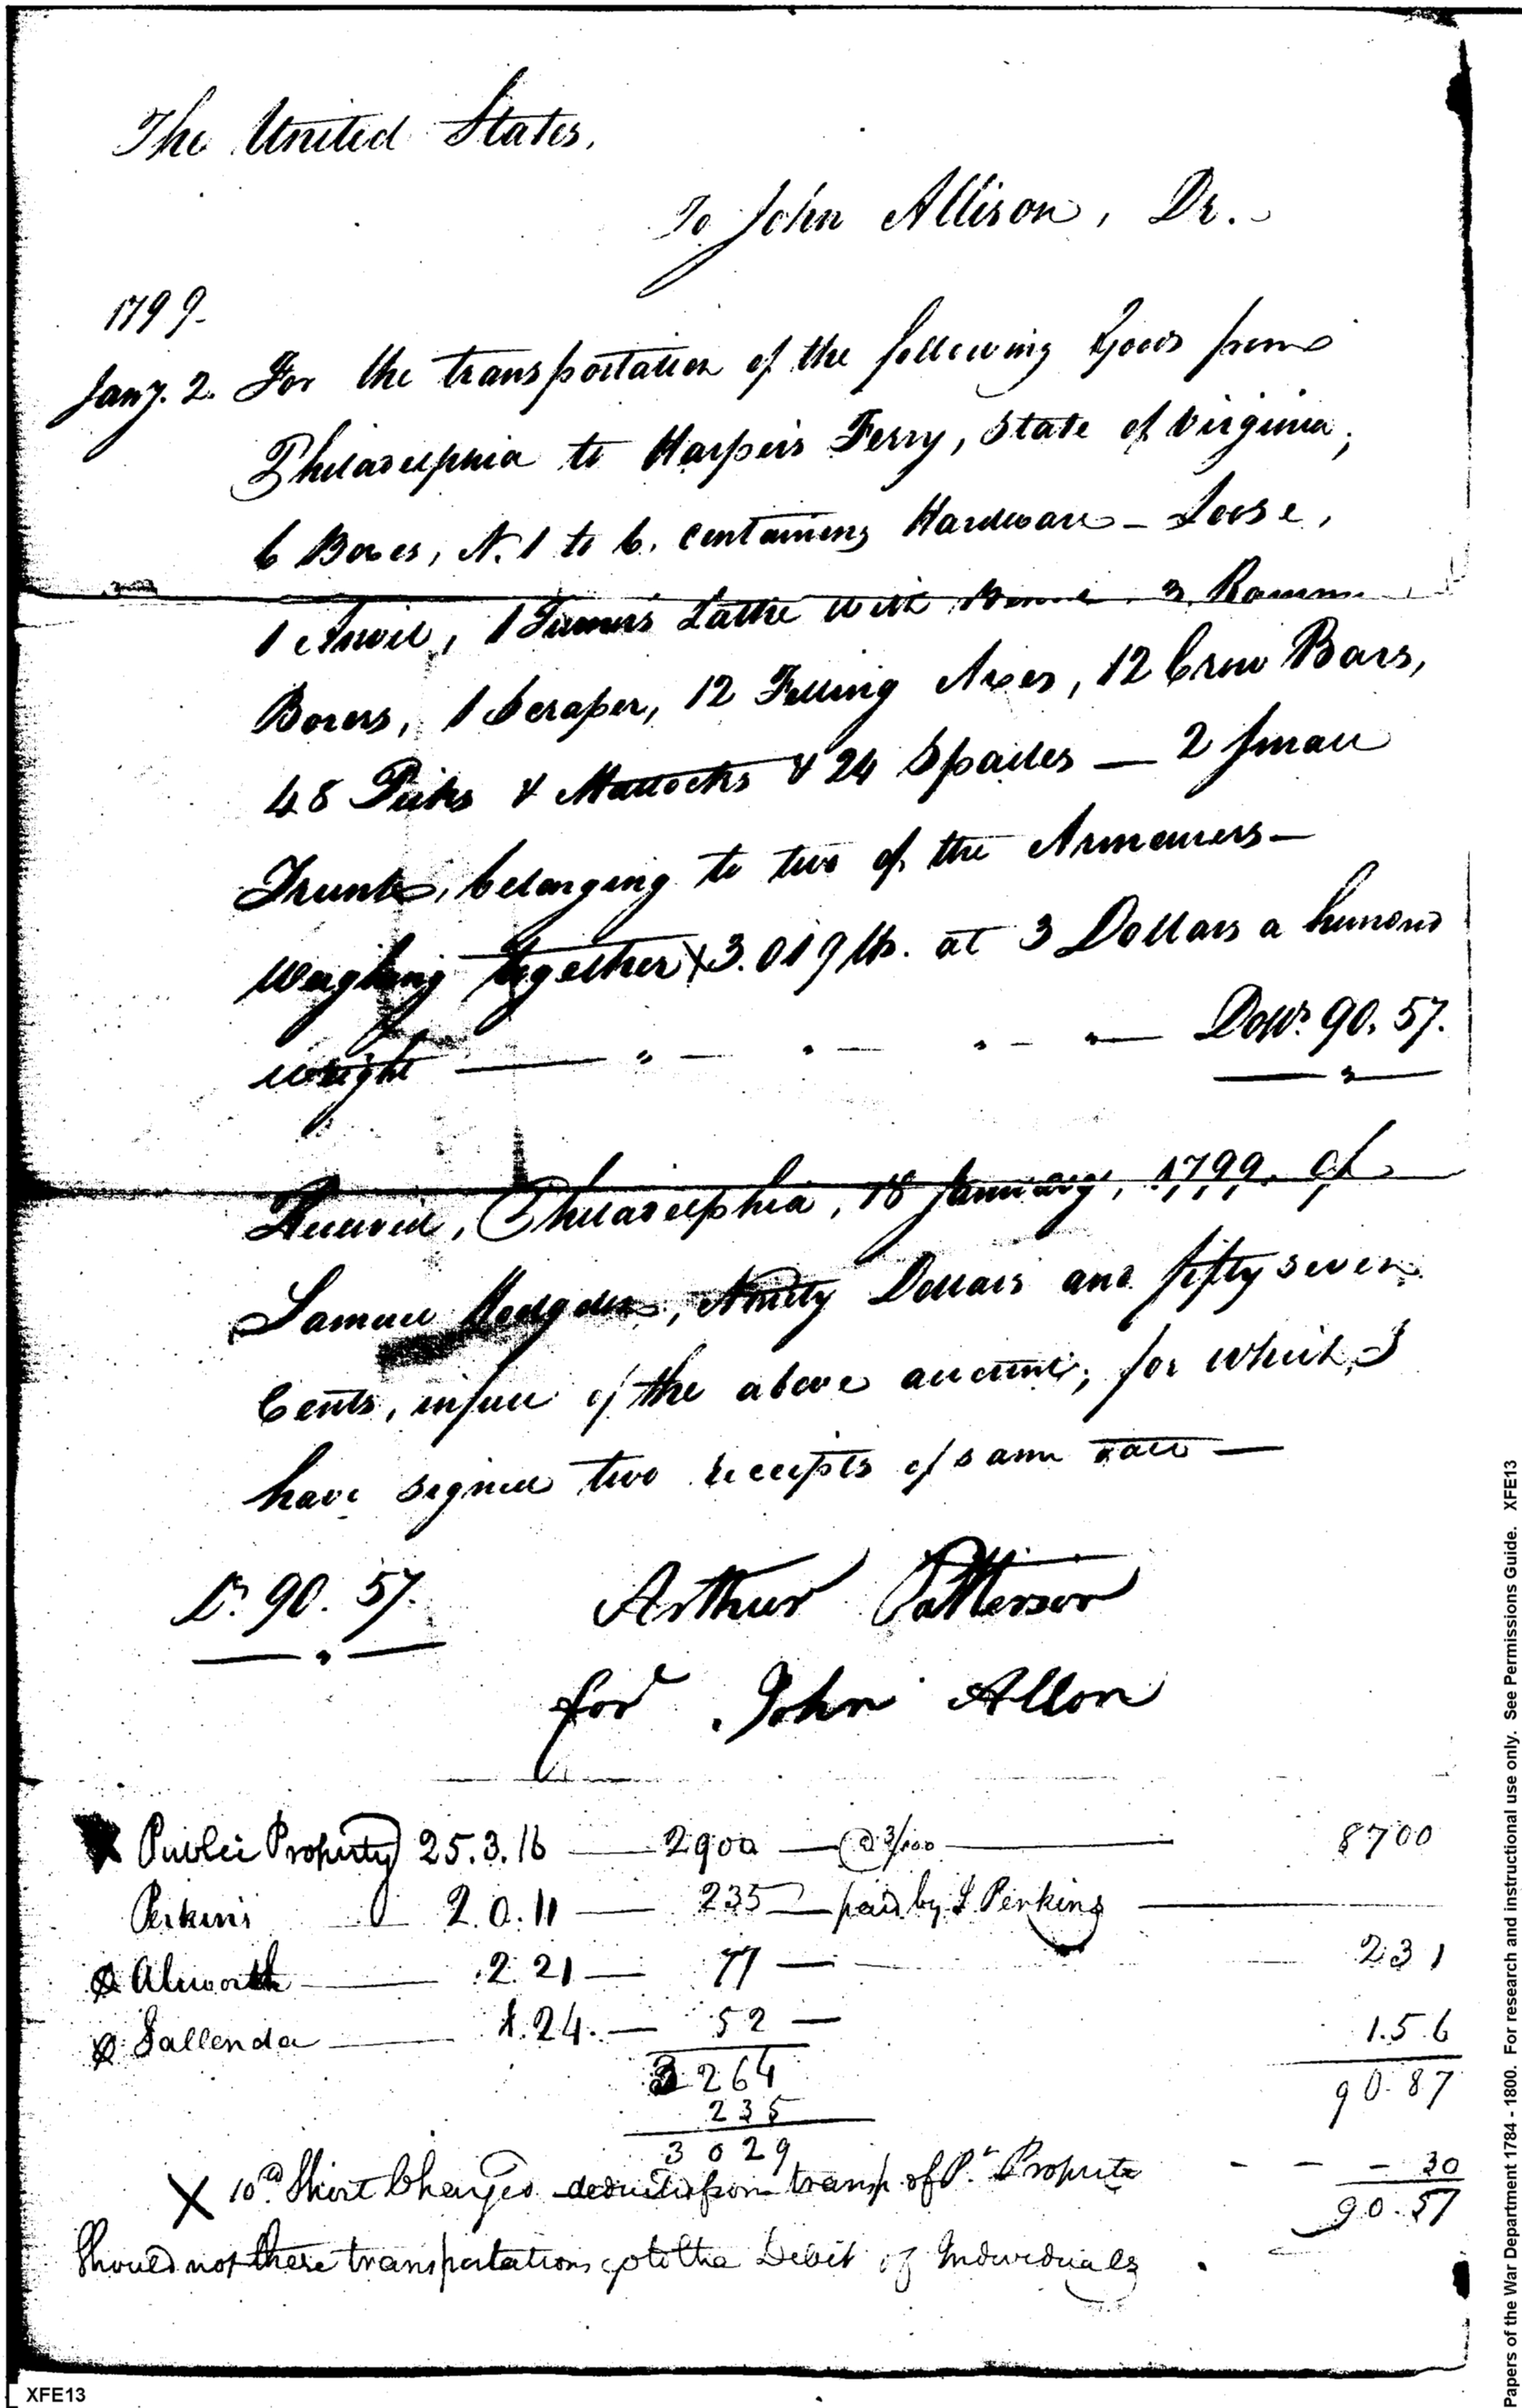 The United States,
To John Allison, Dr.
1799.
Jany. 2. For the transportation of the following Goods from
Philadelphia to Harper's Ferry, State of Virginia,
6 Boxes, N. 1 to 6. containing Hardware - Loose,
1 Anvil, 1 Turner's Lathe with 3
Borers, 1 Scraper, 12 Felling Axes, 12 Crow Bars,
48 Picks & Mattocks & 24 Spades — 2 small
Trunks, belonging to two of the Armourers —
weighing together X 3.019 lb. at 3 Dollars a hundred
weight — " — " — " — " — Dolls. 90.57.
Received, Philadelphia, 18 January, 1799. of
Samuel Hodgdon, Ninety Dollars and fifty seven
Cents, in full of the above account, for which I
have signed two receipts of same date —
Ds. 90.57. Arthur Patterson
for John Allon
X Public Property 25.3.16 — 2900 — @ 3/100 — 8700
Perkins 2.0.11 — 235 — paid by J. Perkins —
Alworth — .2.21 — 77 — 231
Sallenda — 1.24. — 52 — 1.56
3264 90.87
235
3029
X 10 lb Short Charged deducted from transp. of P. Property - - - 30
90.57
Should not these transportations go to the Debit of Individuals
XFE13
Papers of the War Department 1784 - 1800. For research and instructional use only. See Permissions Guide. XFE13